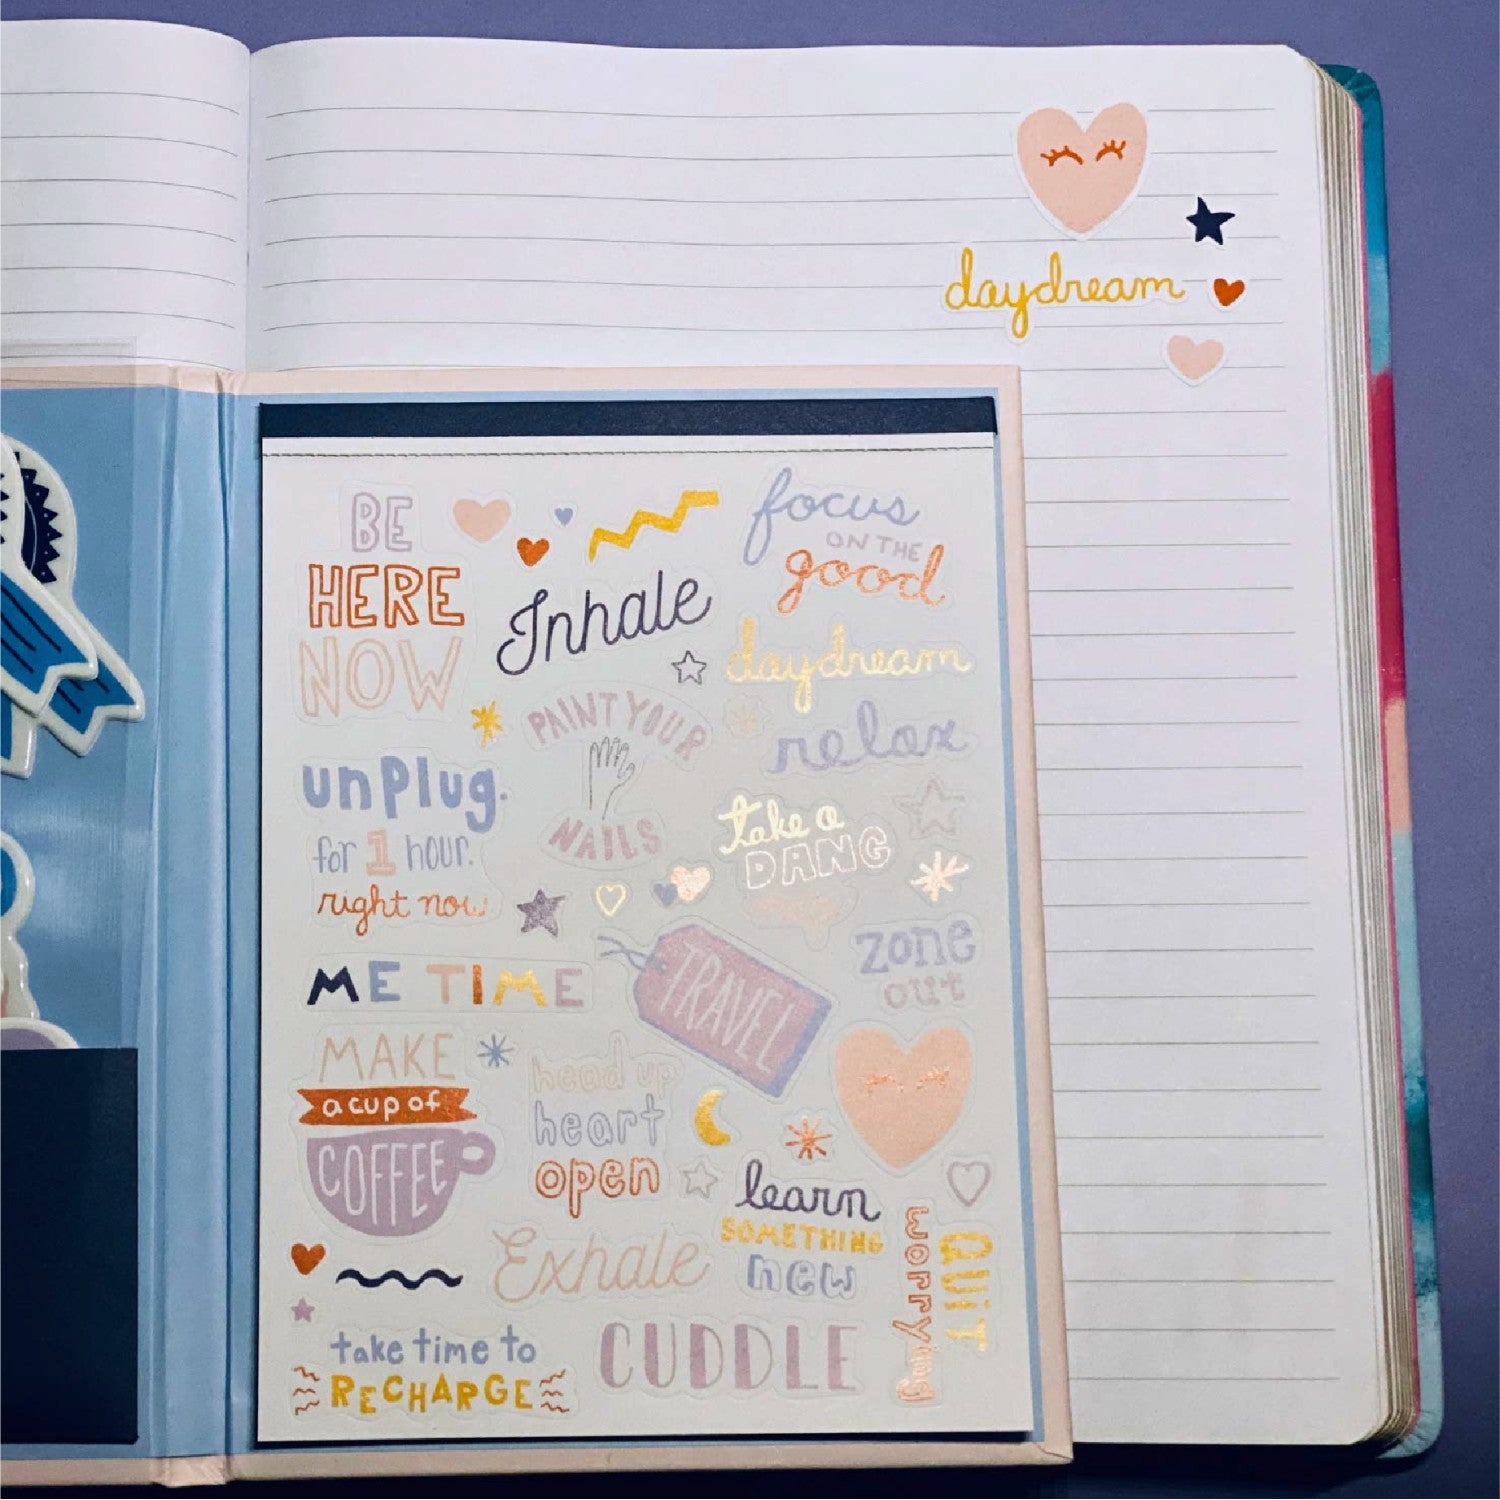 daydream
BE
HERE
NOW
Inhale
focus
ON THE
good
daydream
relax
PAINT YOUR
NAILS
unplug.
for 1 hour.
right now
take a
DANG
ME TIME
TRAVEL
zone
out
MAKE
a cup of
COFFEE
head up
heart
open
learn
SOMETHING
new
QUIT
worrying
Exhale
take time to
RECHARGE
CUDDLE